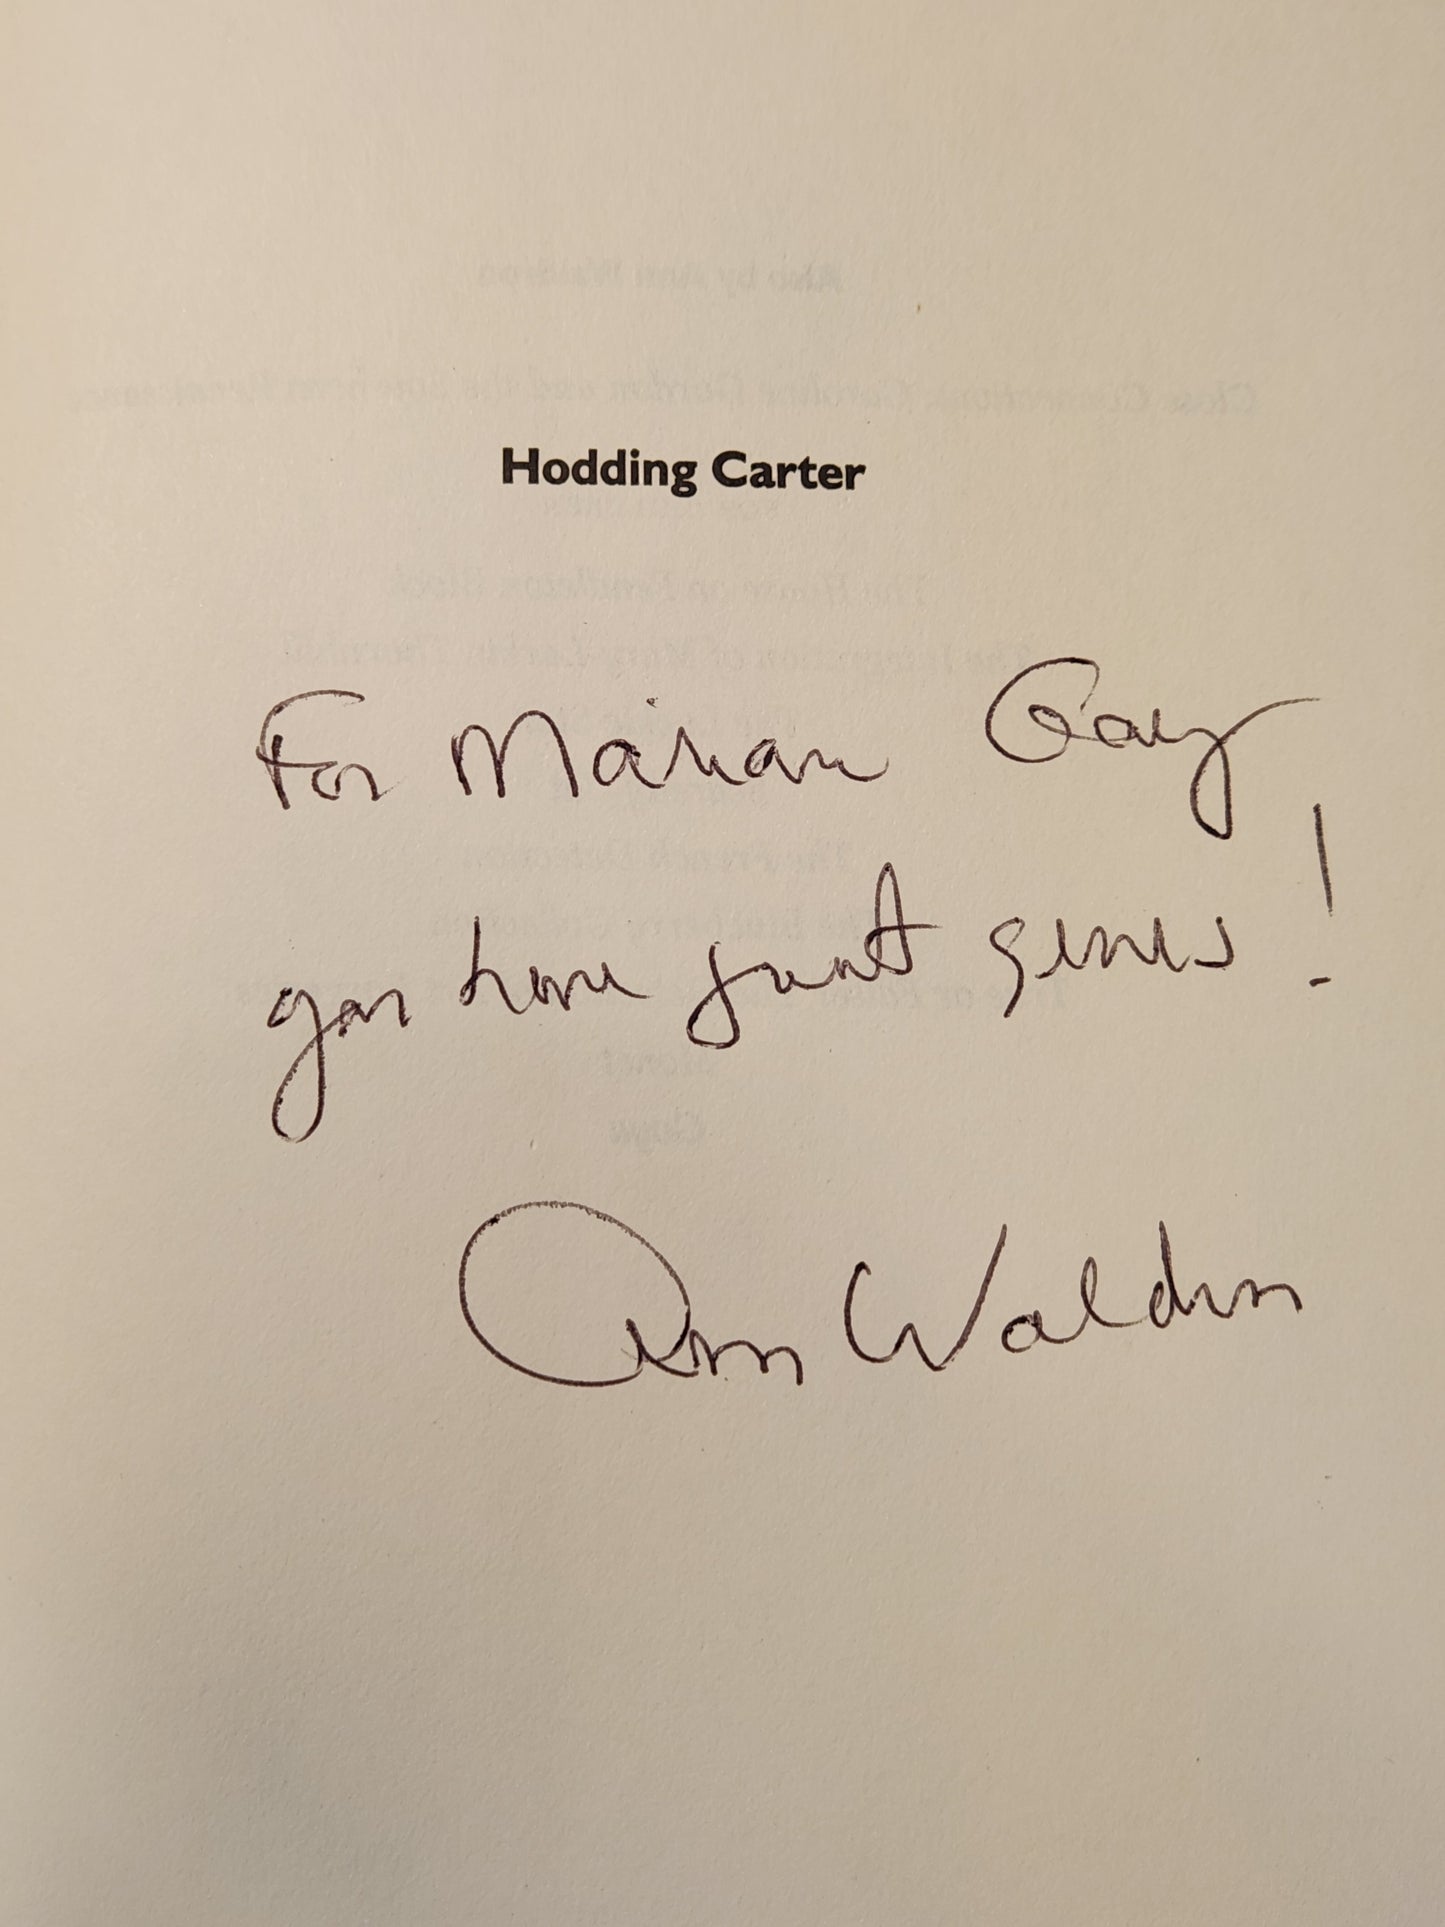 Hodding Carter
For Marian Gay
you have great genes!
Ann Waldron